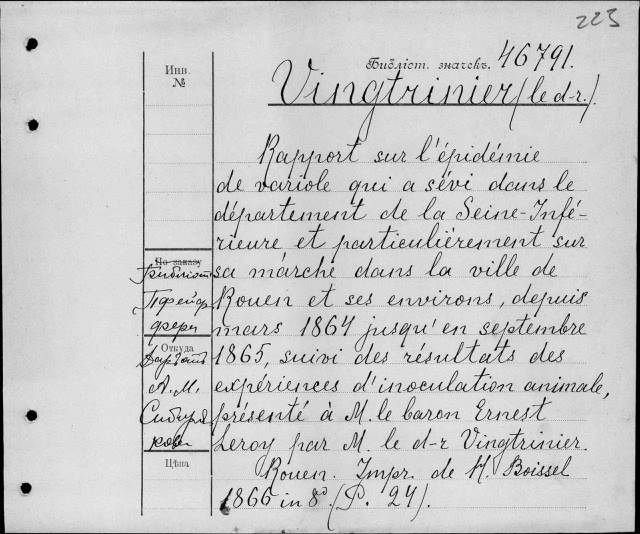 223
Библіот. значекъ. 46791.
Vingtrinier (le d-r.).
Инв.
№
Rapport sur l'épidémie
de variole qui a sévi dans le
département de la Seine-Infé-
rieure et particulièrement sur
sa marche dans la ville de
Rouen et ses environs, depuis
mars 1864 jusqu'en septembre
1865, suivi des résultats des
expériences d'inoculation animale,
présenté à M. le baron Ernest
Leroy par M. le d-r Vingtrinier.
Rouen. Impr. de H. Boissel
1866 in 8º. (P. 27).
По заказу
Пфейф
фера
Откуда
А. М.
Сибиря
кова
Цѣна